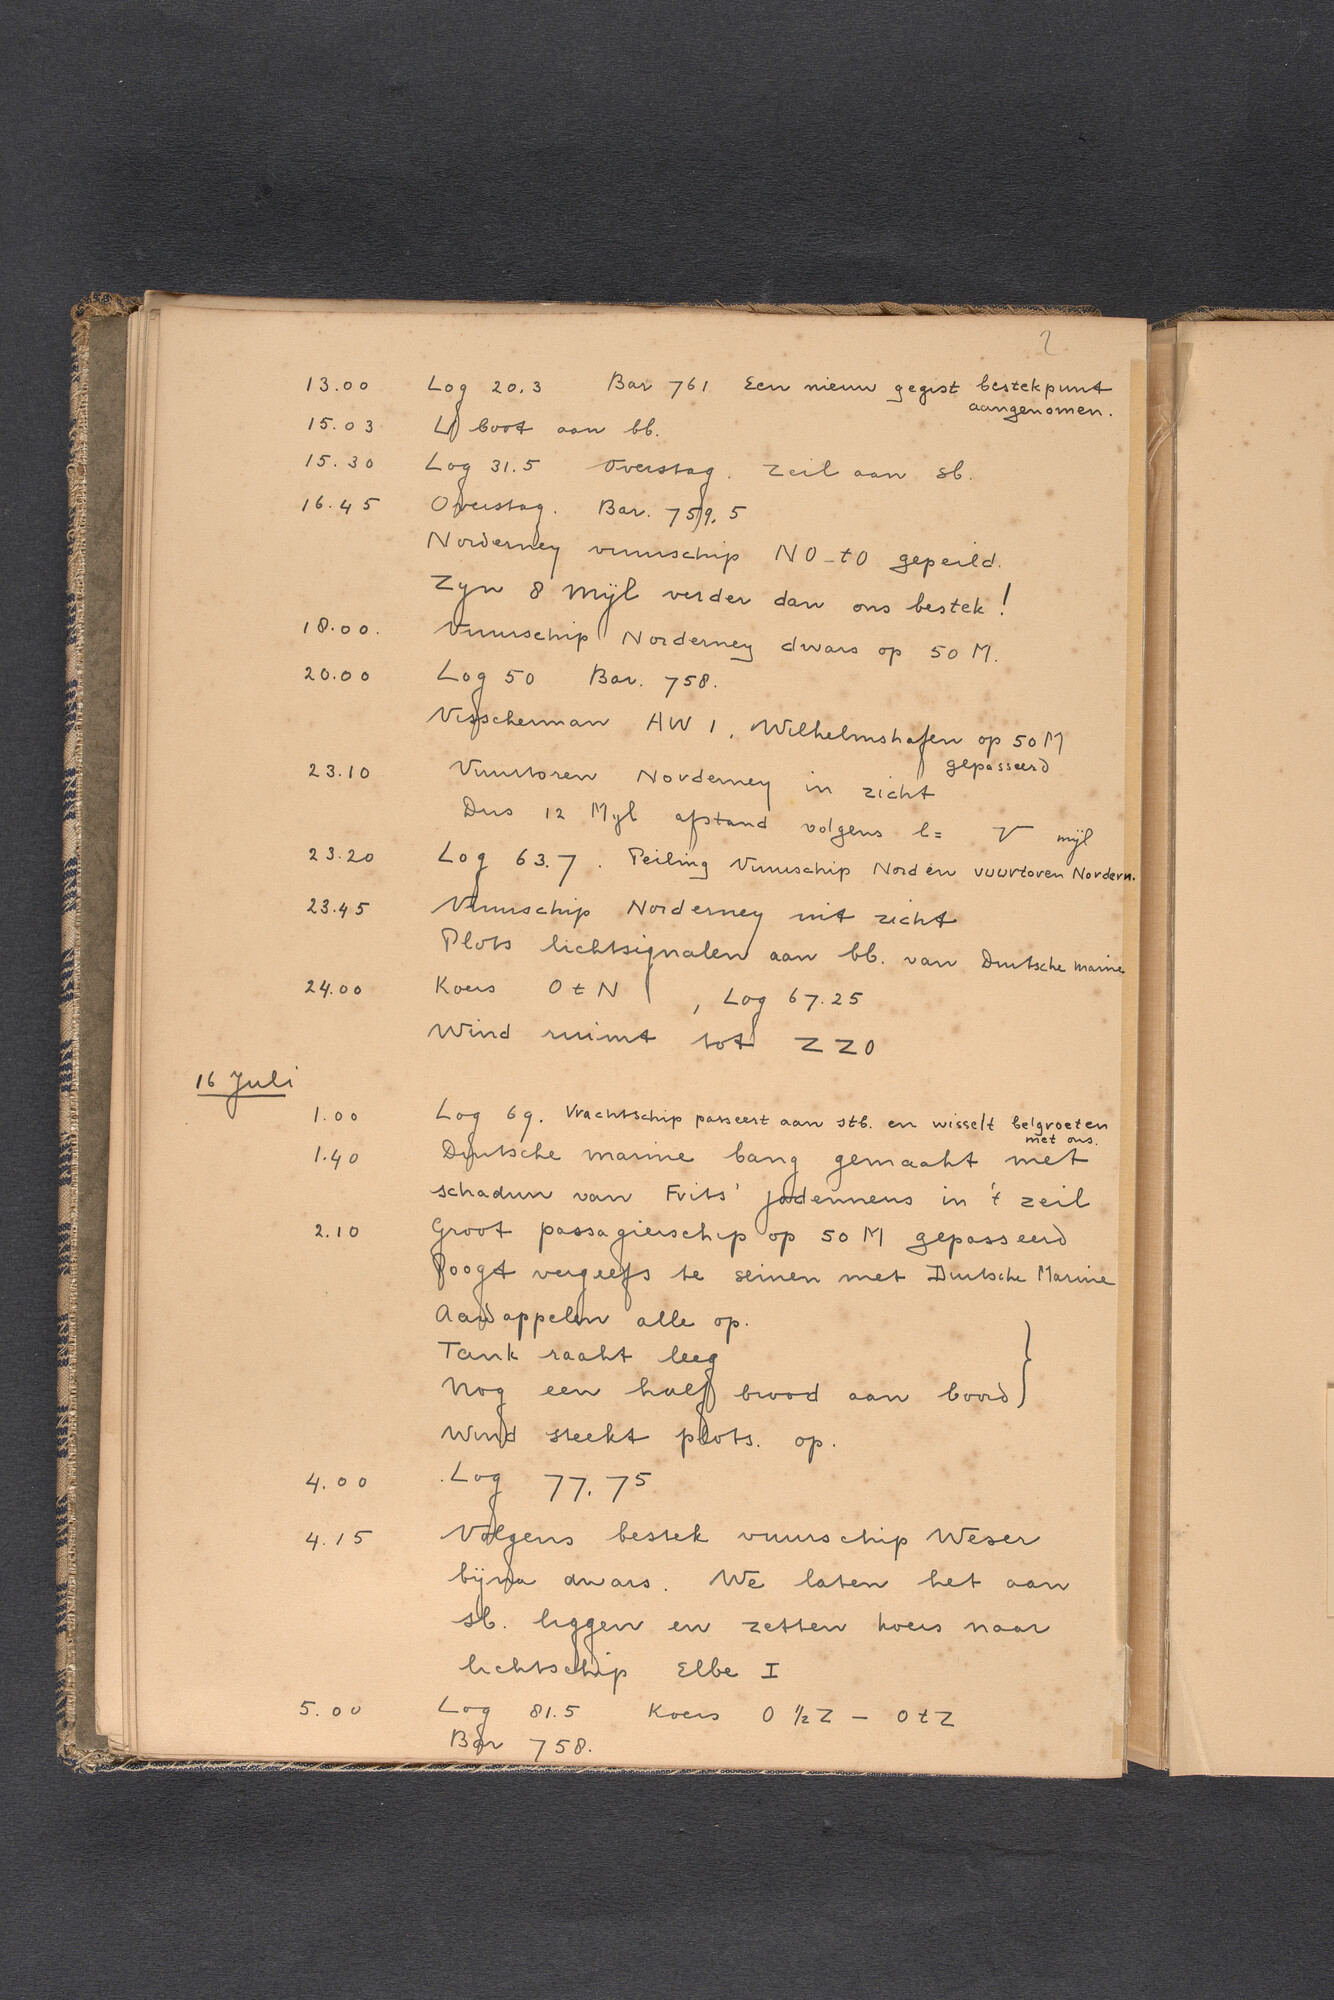 2
13.00 Log 20.3 Bar 761 Een nieuw gegist bestekpunt
aangenomen.
15.03 U boot aan bb.
15.30 Log 31.5 Overstag. Zeil aan sb.
16.45 Overstag. Bar. 759.5
Norderney vuurschip NO-tO gepeild.
Zijn 8 Mijl verder dan ons bestek!
18.00. Vuurschip Norderney dwars op 50 M.
20.00 Log 50 Bar. 758.
Visscherman AW 1, Wilhelmshafen op 50 M
gepasseerd
23.10 Vuurtoren Norderney in zicht
Dus 12 Mijl afstand volgens l= V mijl
23.20 Log 63.7. Peiling Vuurschip Nord en vuurtoren Nordern.
23.45 Vuurschip Norderney uit zicht
Plots lichtsignalen aan bb. van Duitsche marine
24.00 Koers O t N, Log 67.25
Wind ruimt tot ZZO
16 Juli
1.00 Log 69. Vrachtschip passeert aan stb. en wisselt belgroeten
met ons.
1.40 Duitsche marine bang gemaakt met
schaduw van Frits' jodenneus in 't zeil
2.10 Groot passagierschip op 50 M gepasseerd
Poogt vergeefs te seinen met Duitsche Marine
Aardappelen alle op.
Tank raakt leeg
Nog een half brood aan boord
Wind steekt plots. op.
4.00 Log 77.75
4.15 Volgens bestek vuurschip Weser
bijna dwars. We laten het aan
sb. liggen en zetten koers naar
lichtschip Elbe I
5.00 Log 81.5 Koers O ½ Z - O t Z
Bar 758.